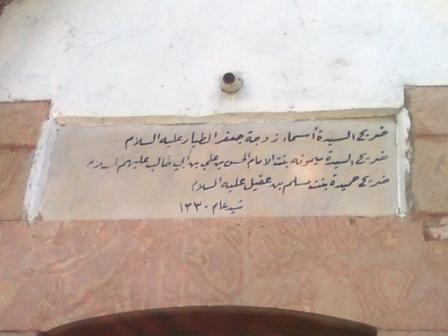 ضريح السيدة أسماء زوجة جعفر الطيار عليه السلام
ضريح السيدة ميمونه بنت الامام الحسن بن علي بن أبي طالب عليهم السلام
ضريح حميدة بنت مسلم بن عقيل عليه السلام
شيد عام ١٣٣٠